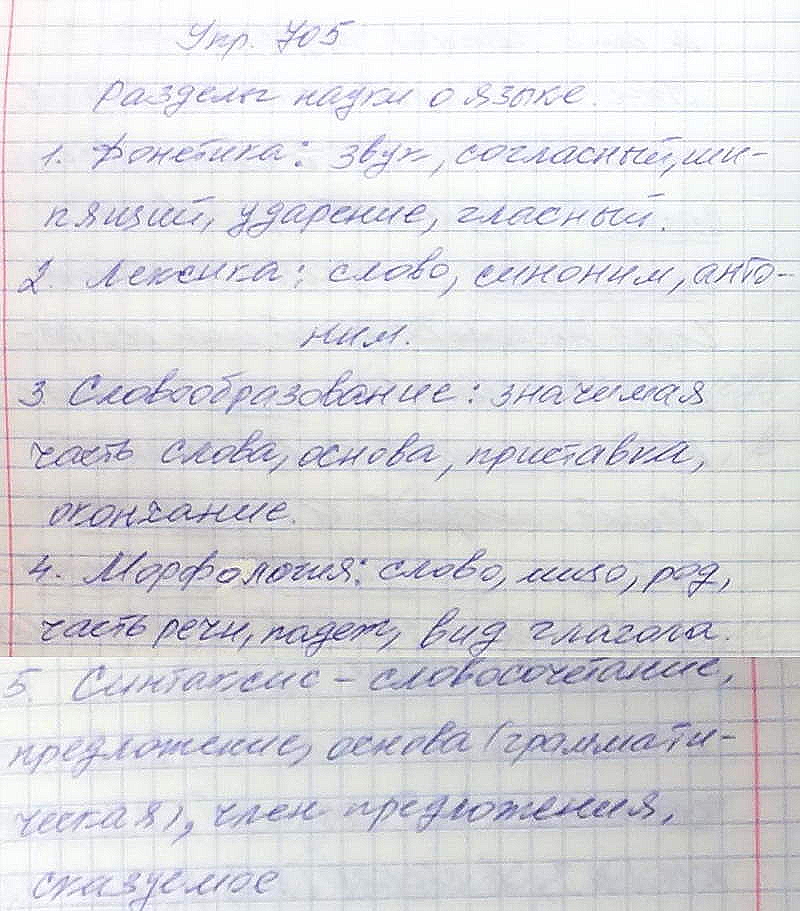 Упр. 705
Разделы науки о языке.
1. Фонетика: звук, согласный, ши-
пящий, ударение, гласный.
2. Лексика: слово, синоним, анто-
ним.
3 Словообразование: значимая
часть слова, основа, приставка,
окончание.
4. Морфология: слово, лицо, род,
часть речи, падеж, вид глагола.
5. Синтаксис – словосочетание,
предложение, основа (граммати-
ческая), член предложения,
сказуемое